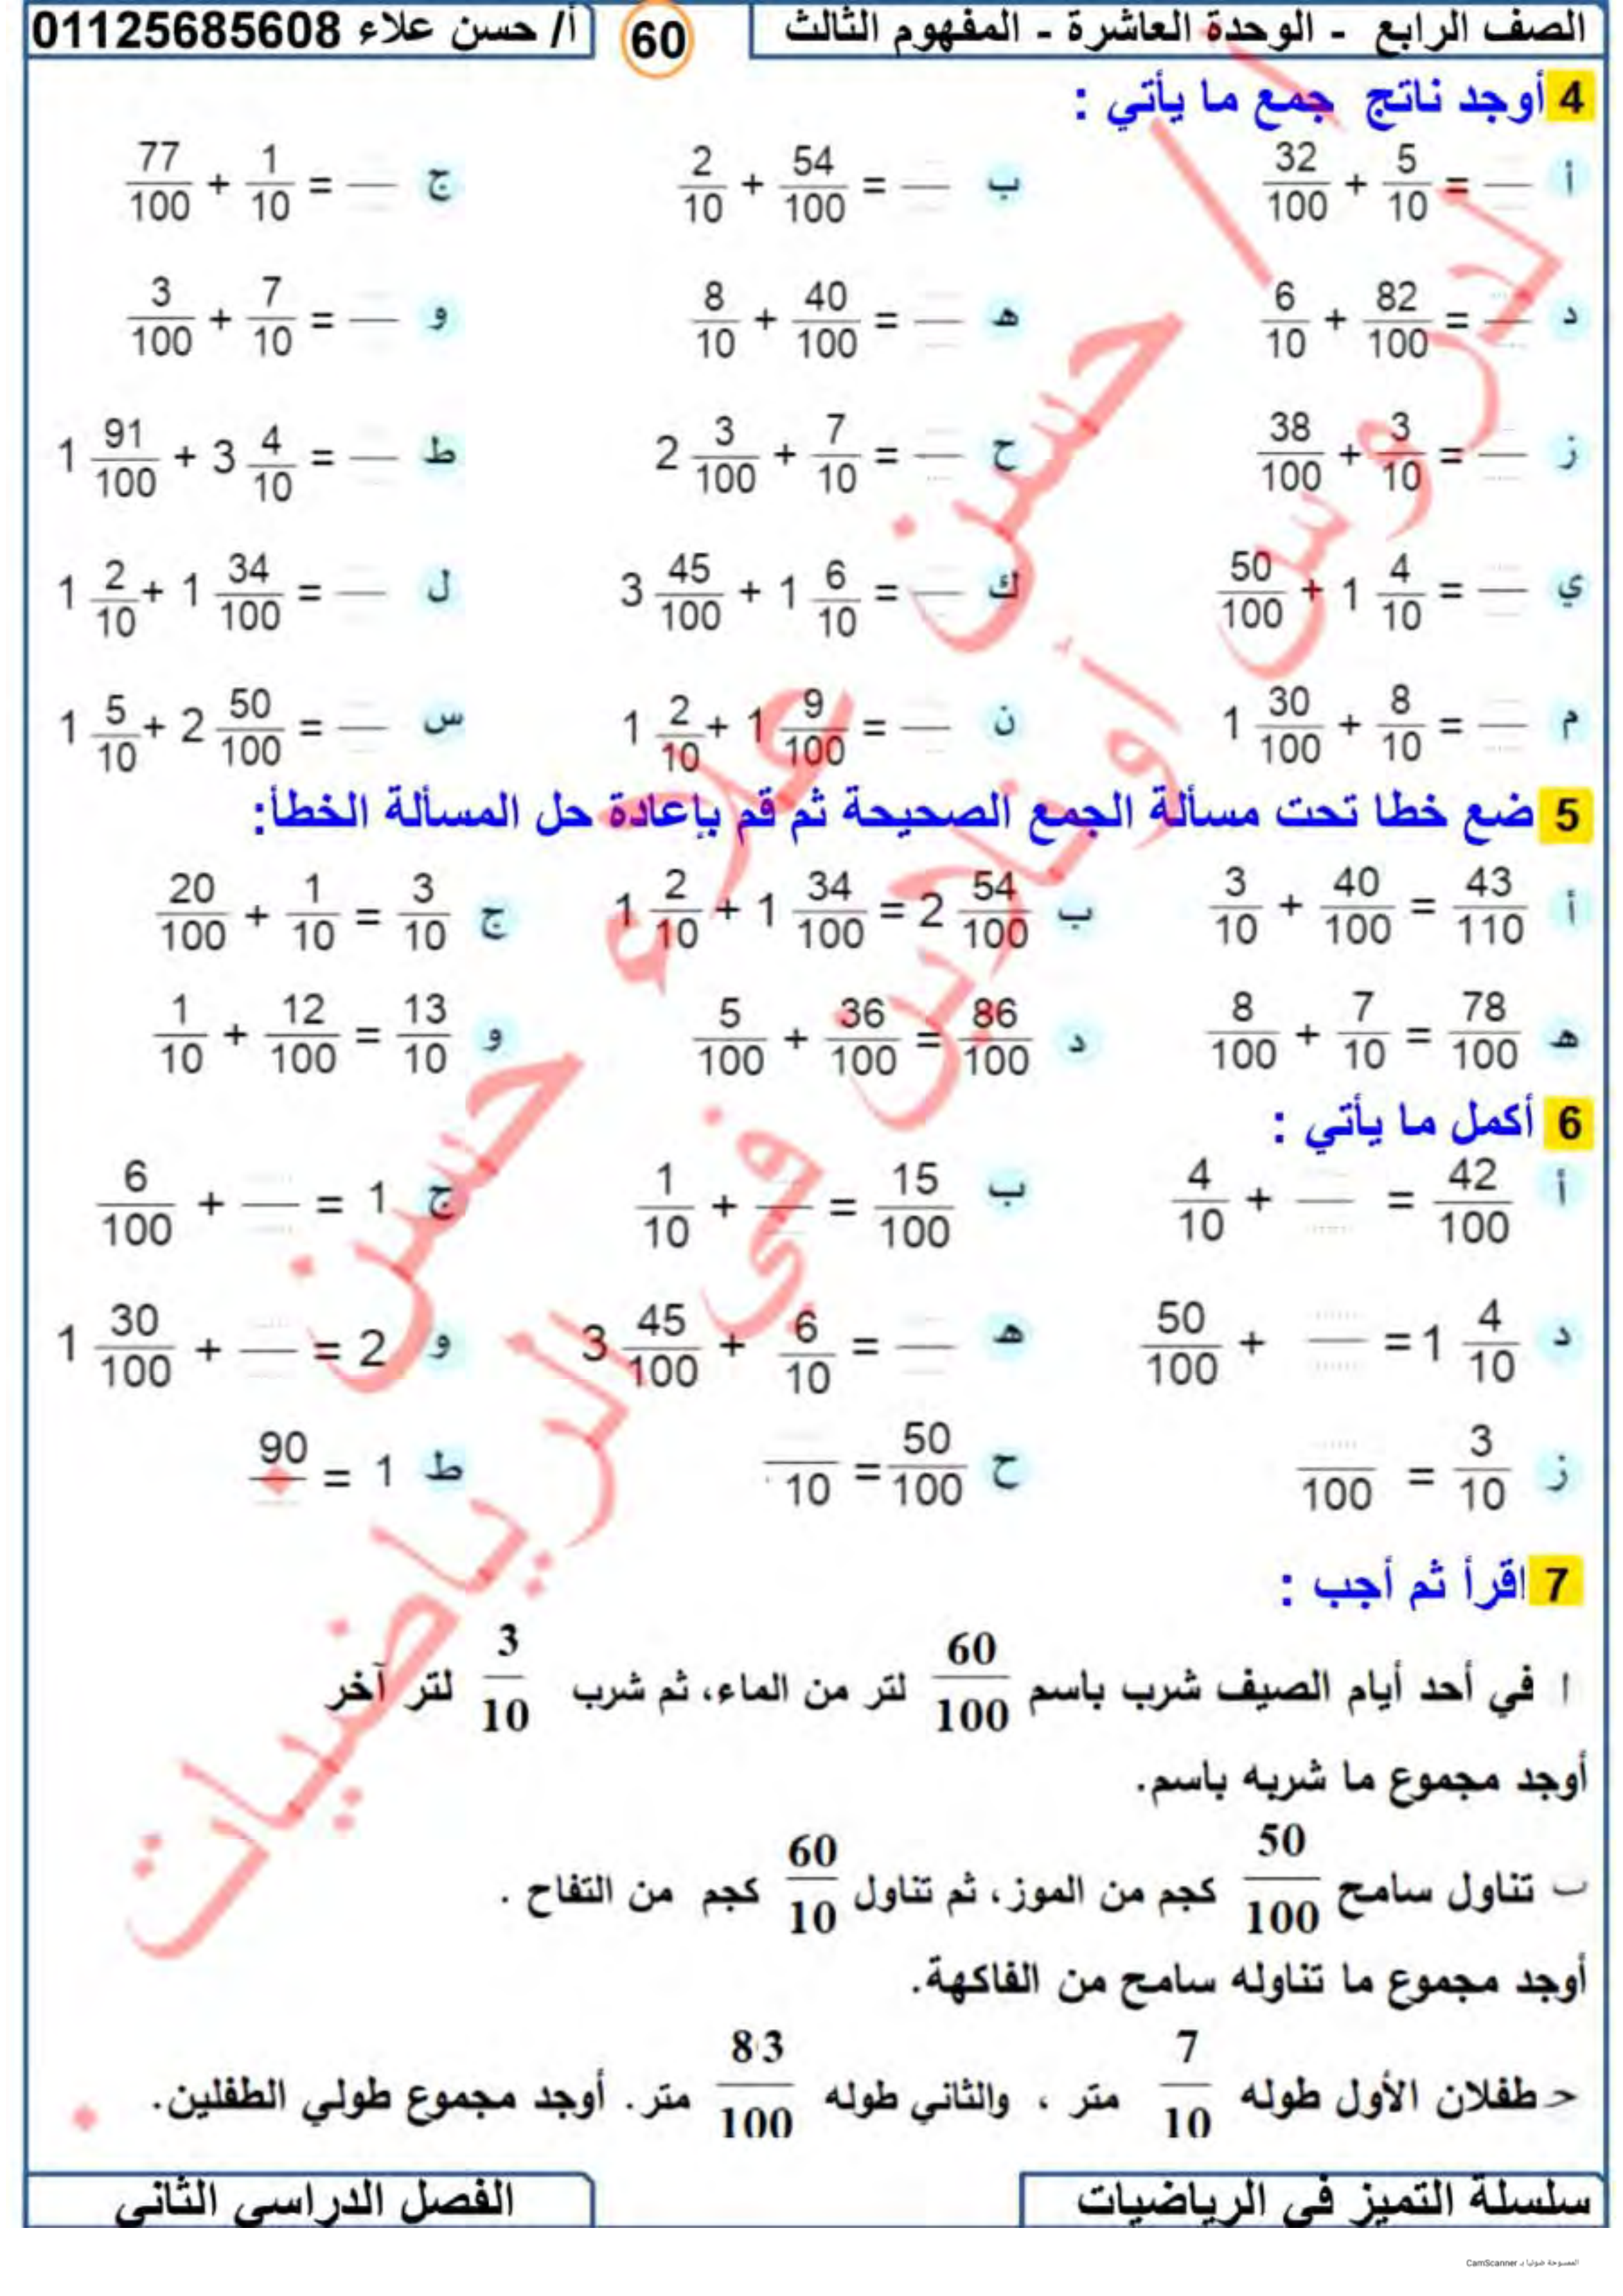 الصف الرابع - الوحدة العاشرة - المفهوم الثالث 60 أ/ حسن علاء 01125685608
4 أوجد ناتج جمع ما يأتي :
أ 32/100 + 5/10 = — ب 2/10 + 54/100 = — ج 77/100 + 1/10 = —
د 6/10 + 82/100 = — هـ 8/10 + 40/100 = — و 3/100 + 7/10 = —
ز 38/100 + 3/10 = — ح 2 3/100 + 7/10 = — ط 1 91/100 + 3 4/10 = —
ي 50/100 + 1 4/10 = — ك 3 45/100 + 1 6/10 = — ل 1 2/10 + 1 34/100 = —
م 1 30/100 + 8/10 = — ن 1 2/10 + 1 9/100 = — س 1 5/10 + 2 50/100 = —
5 ضع خطا تحت مسألة الجمع الصحيحة ثم قم بإعادة حل المسألة الخطأ:
أ 3/10 + 40/100 = 43/110 ب 1 2/10 + 1 34/100 = 2 54/100 ج 20/100 + 1/10 = 3/10
هـ 8/100 + 7/10 = 78/100 د 5/100 + 36/100 = 86/100 و 1/10 + 12/100 = 13/10
6 أكمل ما يأتي :
أ 4/10 + — = 42/100 ب 1/10 + — = 15/100 ج 6/100 + — = 1
د 50/100 + — = 1 4/10 هـ 3 45/100 + 6/10 = — و 1 30/100 + — = 2
ز —/100 = 3/10 ح —/10 = 50/100 ط 90/— = 1
7 اقرأ ثم أجب :
ا في أحد أيام الصيف شرب باسم 60/100 لتر من الماء، ثم شرب 3/10 لتر آخر
أوجد مجموع ما شربه باسم.
ب تناول سامح 50/100 كجم من الموز، ثم تناول 60/10 كجم من التفاح .
أوجد مجموع ما تناوله سامح من الفاكهة.
حـ طفلان الأول طوله 7/10 متر ، والثاني طوله 83/100 متر. أوجد مجموع طولي الطفلين.
سلسلة التميز في الرياضيات الفصل الدراسي الثاني
أ / حسن علاء حسن
دروس أونلاين في الرياضيات
الممسوحة ضوئيا بـ CamScanner